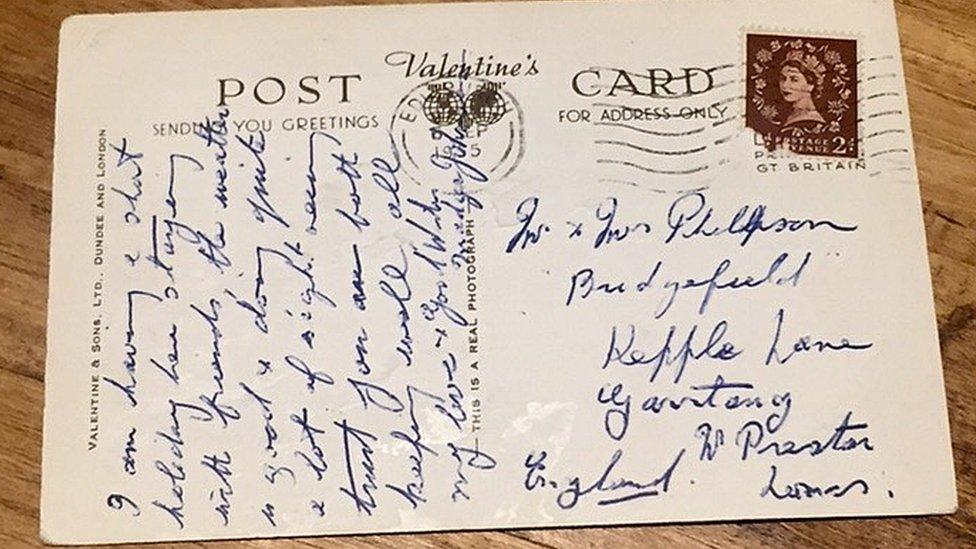 POST Valentine's CARD
SENDING YOU GREETINGS
FOR ADDRESS ONLY
VALENTINE & SONS, LTD., DUNDEE AND LONDON
THIS IS A REAL PHOTOGRAPH
POSTAGE
REVENUE 2D
GT BRITAIN
I am having a short
holiday here staying
with friends, the weather
is good & doing quite
a lot of sight seeing
trust you are both
keeping well all
my love & Good Wishes
Mr & Mrs Phillipson
Bridgefield
Kepple Lane
Garstang
Nr Preston
Lancs.
England.